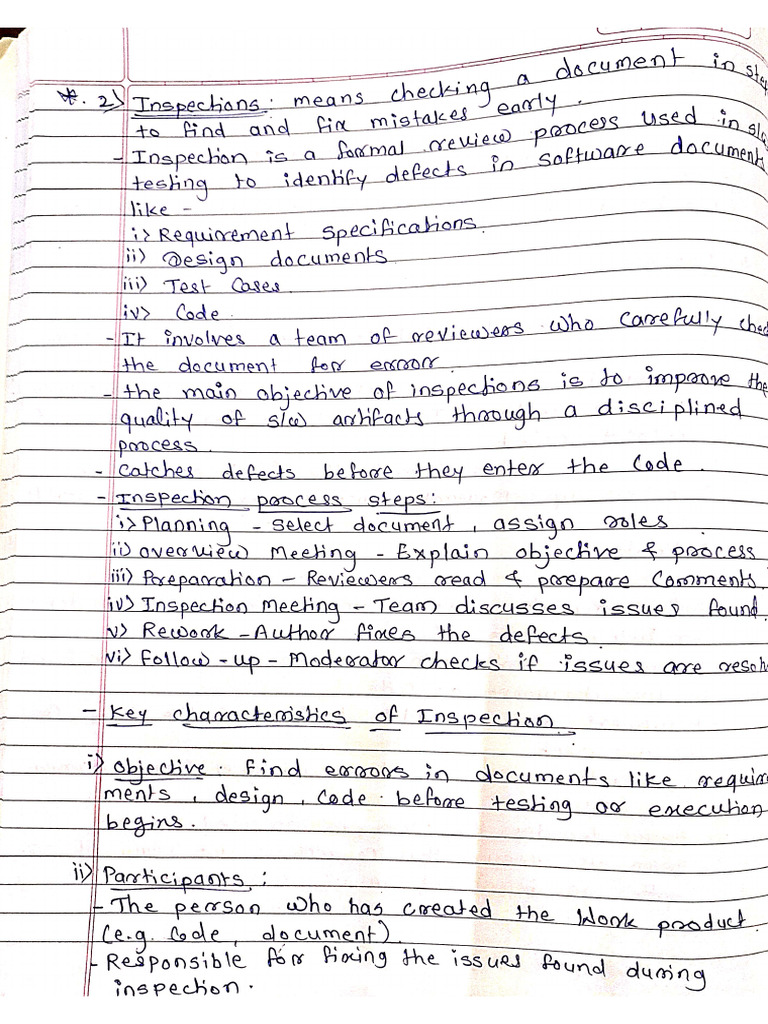 *. 2) Inspections: means checking a document in step
to find and fix mistakes early.
- Inspection is a formal review process used in s/w
testing to identify defects in software document
like -
i) Requirement specifications.
ii) Design documents
iii) Test Cases.
iv) Code.
- It involves a team of reviewers who carefully chec
the document for error.
- the main objective of inspections is to improve the
quality of s/w artifacts through a disciplined
process.
- catches defects before they enter the code.
- Inspection process steps:
i) Planning - select document, assign roles
ii) overview Meeting - Explain objective & process
iii) Preparation - Reviewers read & prepare comments.
iv) Inspection Meeting - Team discusses issues found.
v) Rework - Author fixes the defects.
vi) Follow-up - Moderator checks if issues are resol
- Key characteristics of Inspection.
i) objective. Find errors in documents like require
ments, design, code. before testing or execution
begins.
ii) Participants:
- The person who has created the Work product.
(e.g. Code, document).
- Responsible for fixing the issues found during
inspection.